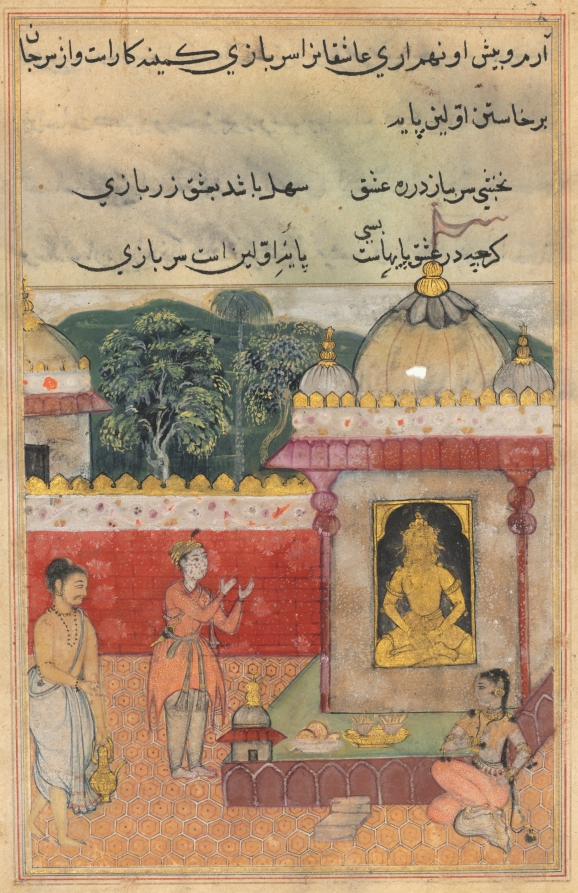 آرم و پیش او نهم اري عاشقانرا سر بازي کمینه کاراست واز سر جان
برخاستن اوّلین پایه
نخشبي سر بباز در ره عشق سهل باشد بعشق زر بازي
کرچه در عشق پایهاست بسي پایهٔ اوّلین است سر بازي